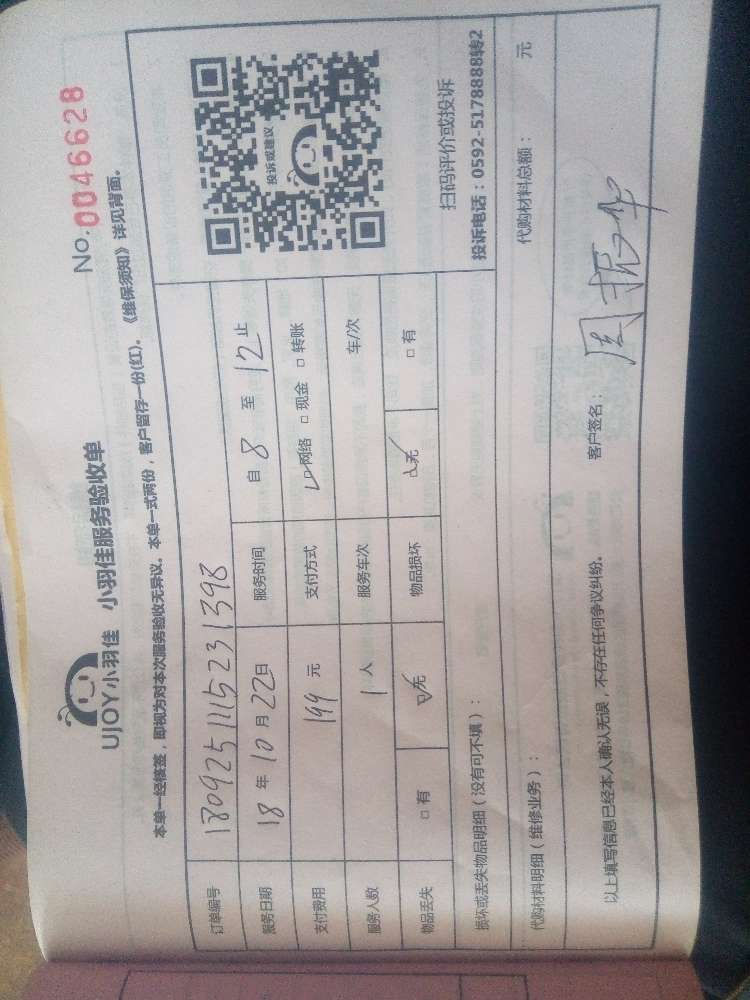 UJOY小羽佳 小羽佳服务验收单
No.0046628
本单一经核签，即视为对本次服务验收无异议。本单一式两份，客户留存一份(红)。《维保须知》详见背面。
订单编号 1809251115231398
服务日期 18年10月22日 服务时间 自8至12止
支付费用 199元 支付方式 网络 □现金 □转账
服务人数 1人 服务车次 车/次
物品丢失 □有 无 物品损坏 无 □有
投诉或建议
扫码评价或投诉
投诉电话：0592-5178888转2
损坏或丢失物品明细（没有可不填）：
代购材料明细（维修业务）： 代购材料总额： 元
以上填写信息已经本人确认无误，不存在任何争议纠纷。 客户签名： 周振华